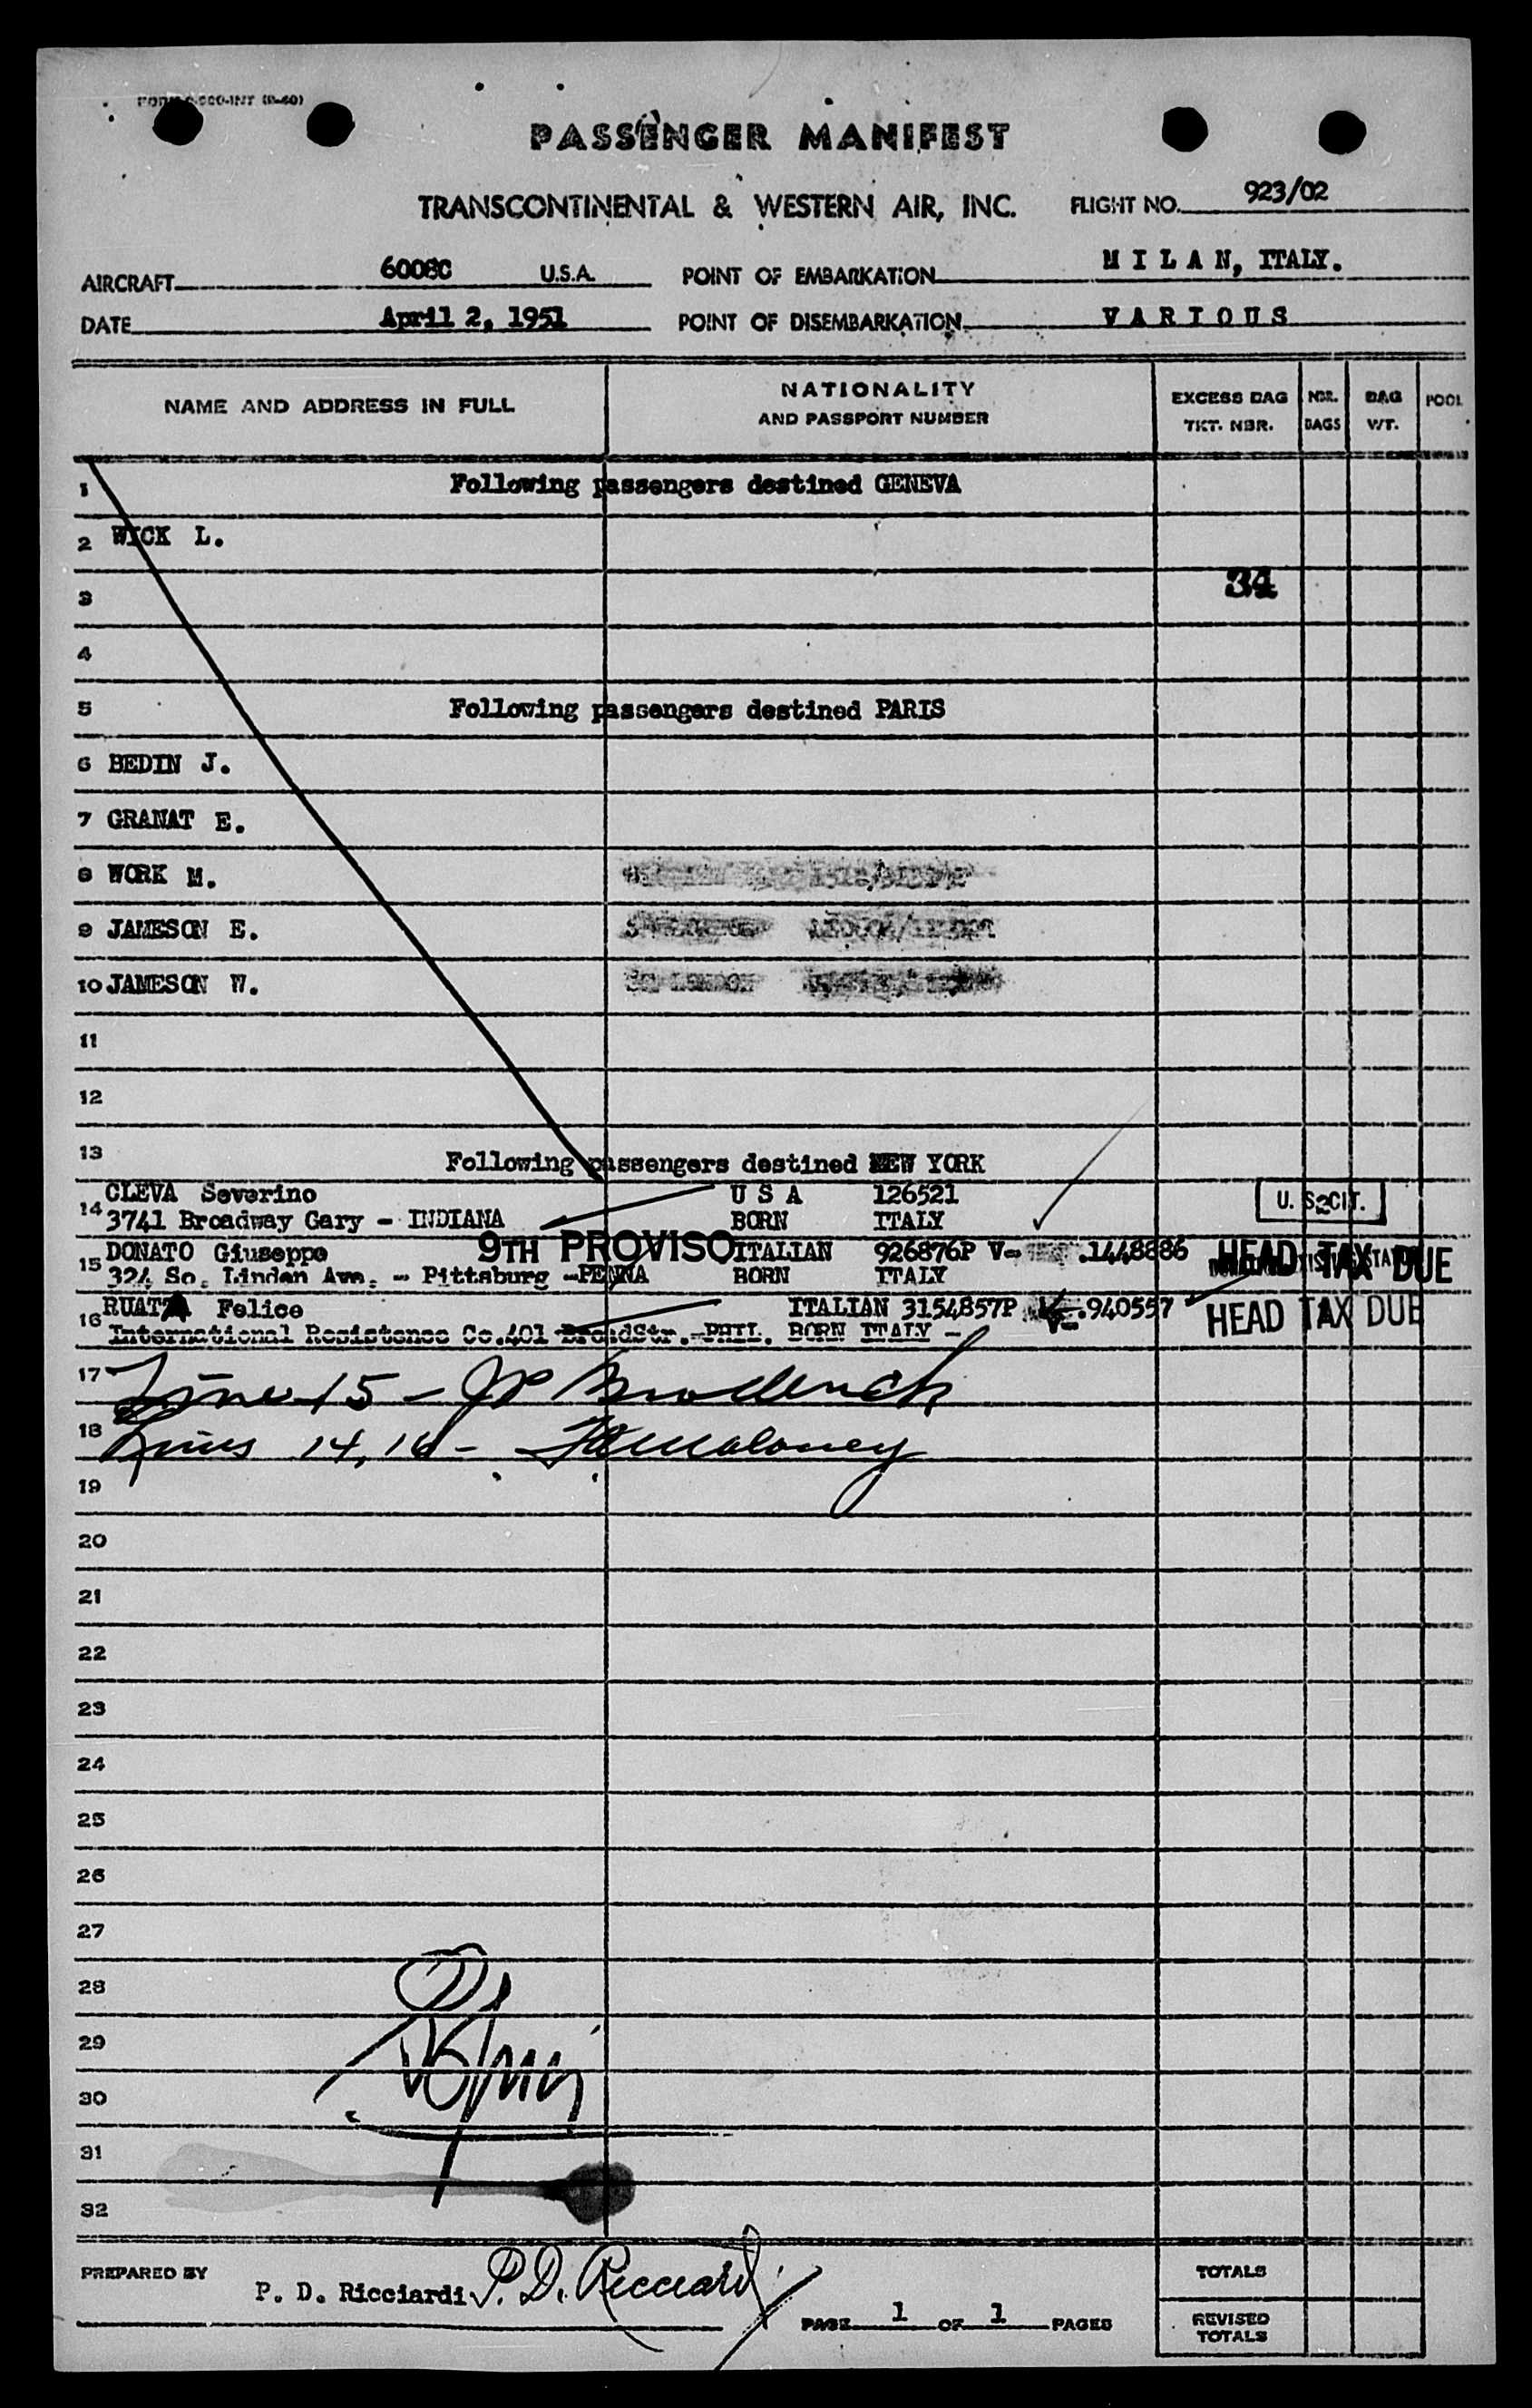 PASSENGER MANIFEST
TRANSCONTINENTAL & WESTERN AIR, INC. FLIGHT NO. 923/02
AIRCRAFT 6008C U.S.A. POINT OF EMBARKATION M I L A N, ITALY.
DATE April 2, 1951 POINT OF DISEMBARKATION V A R I O U S
NAME AND ADDRESS IN FULL NATIONALITY AND PASSPORT NUMBER EXCESS BAG TKT. NBR. NBR. BAGS BAG WT. POOL
1 Following passengers destined GENEVA
2 WICK L.
3 34
4
5 Following passengers destined PARIS
6 BEDIN J.
7 GRANAT E.
8 WORK M.
9 JAMESON E.
10 JAMESON W.
11
12
13 Following passengers destined NEW YORK
14 CLEVA Severino U S A 126521 U. S. CIT.
3741 Broadway Gary - INDIANA BORN ITALY
15 DONATO Giuseppe 9TH PROVISO ITALIAN 926876P V- .1448886 HEAD TAX DUE
324 So. Linden Ave. - Pittsburg -PENNA BORN ITALY
16 RUATTA Felice ITALIAN 3154857P V-.940557 HEAD TAX DUE
International Resistence Co.401 BroadStr.-PHIL. BORN ITALY -
17 Line 15 - JP
18 Lines 14, 16 - Maloney
19
20
21
22
23
24
25
26
27
28
29
30
31
32
PREPARED BY P. D. Ricciardi P. D. Ricciardi
PAGE 1 OF 1 PAGES
TOTALS
REVISED TOTALS